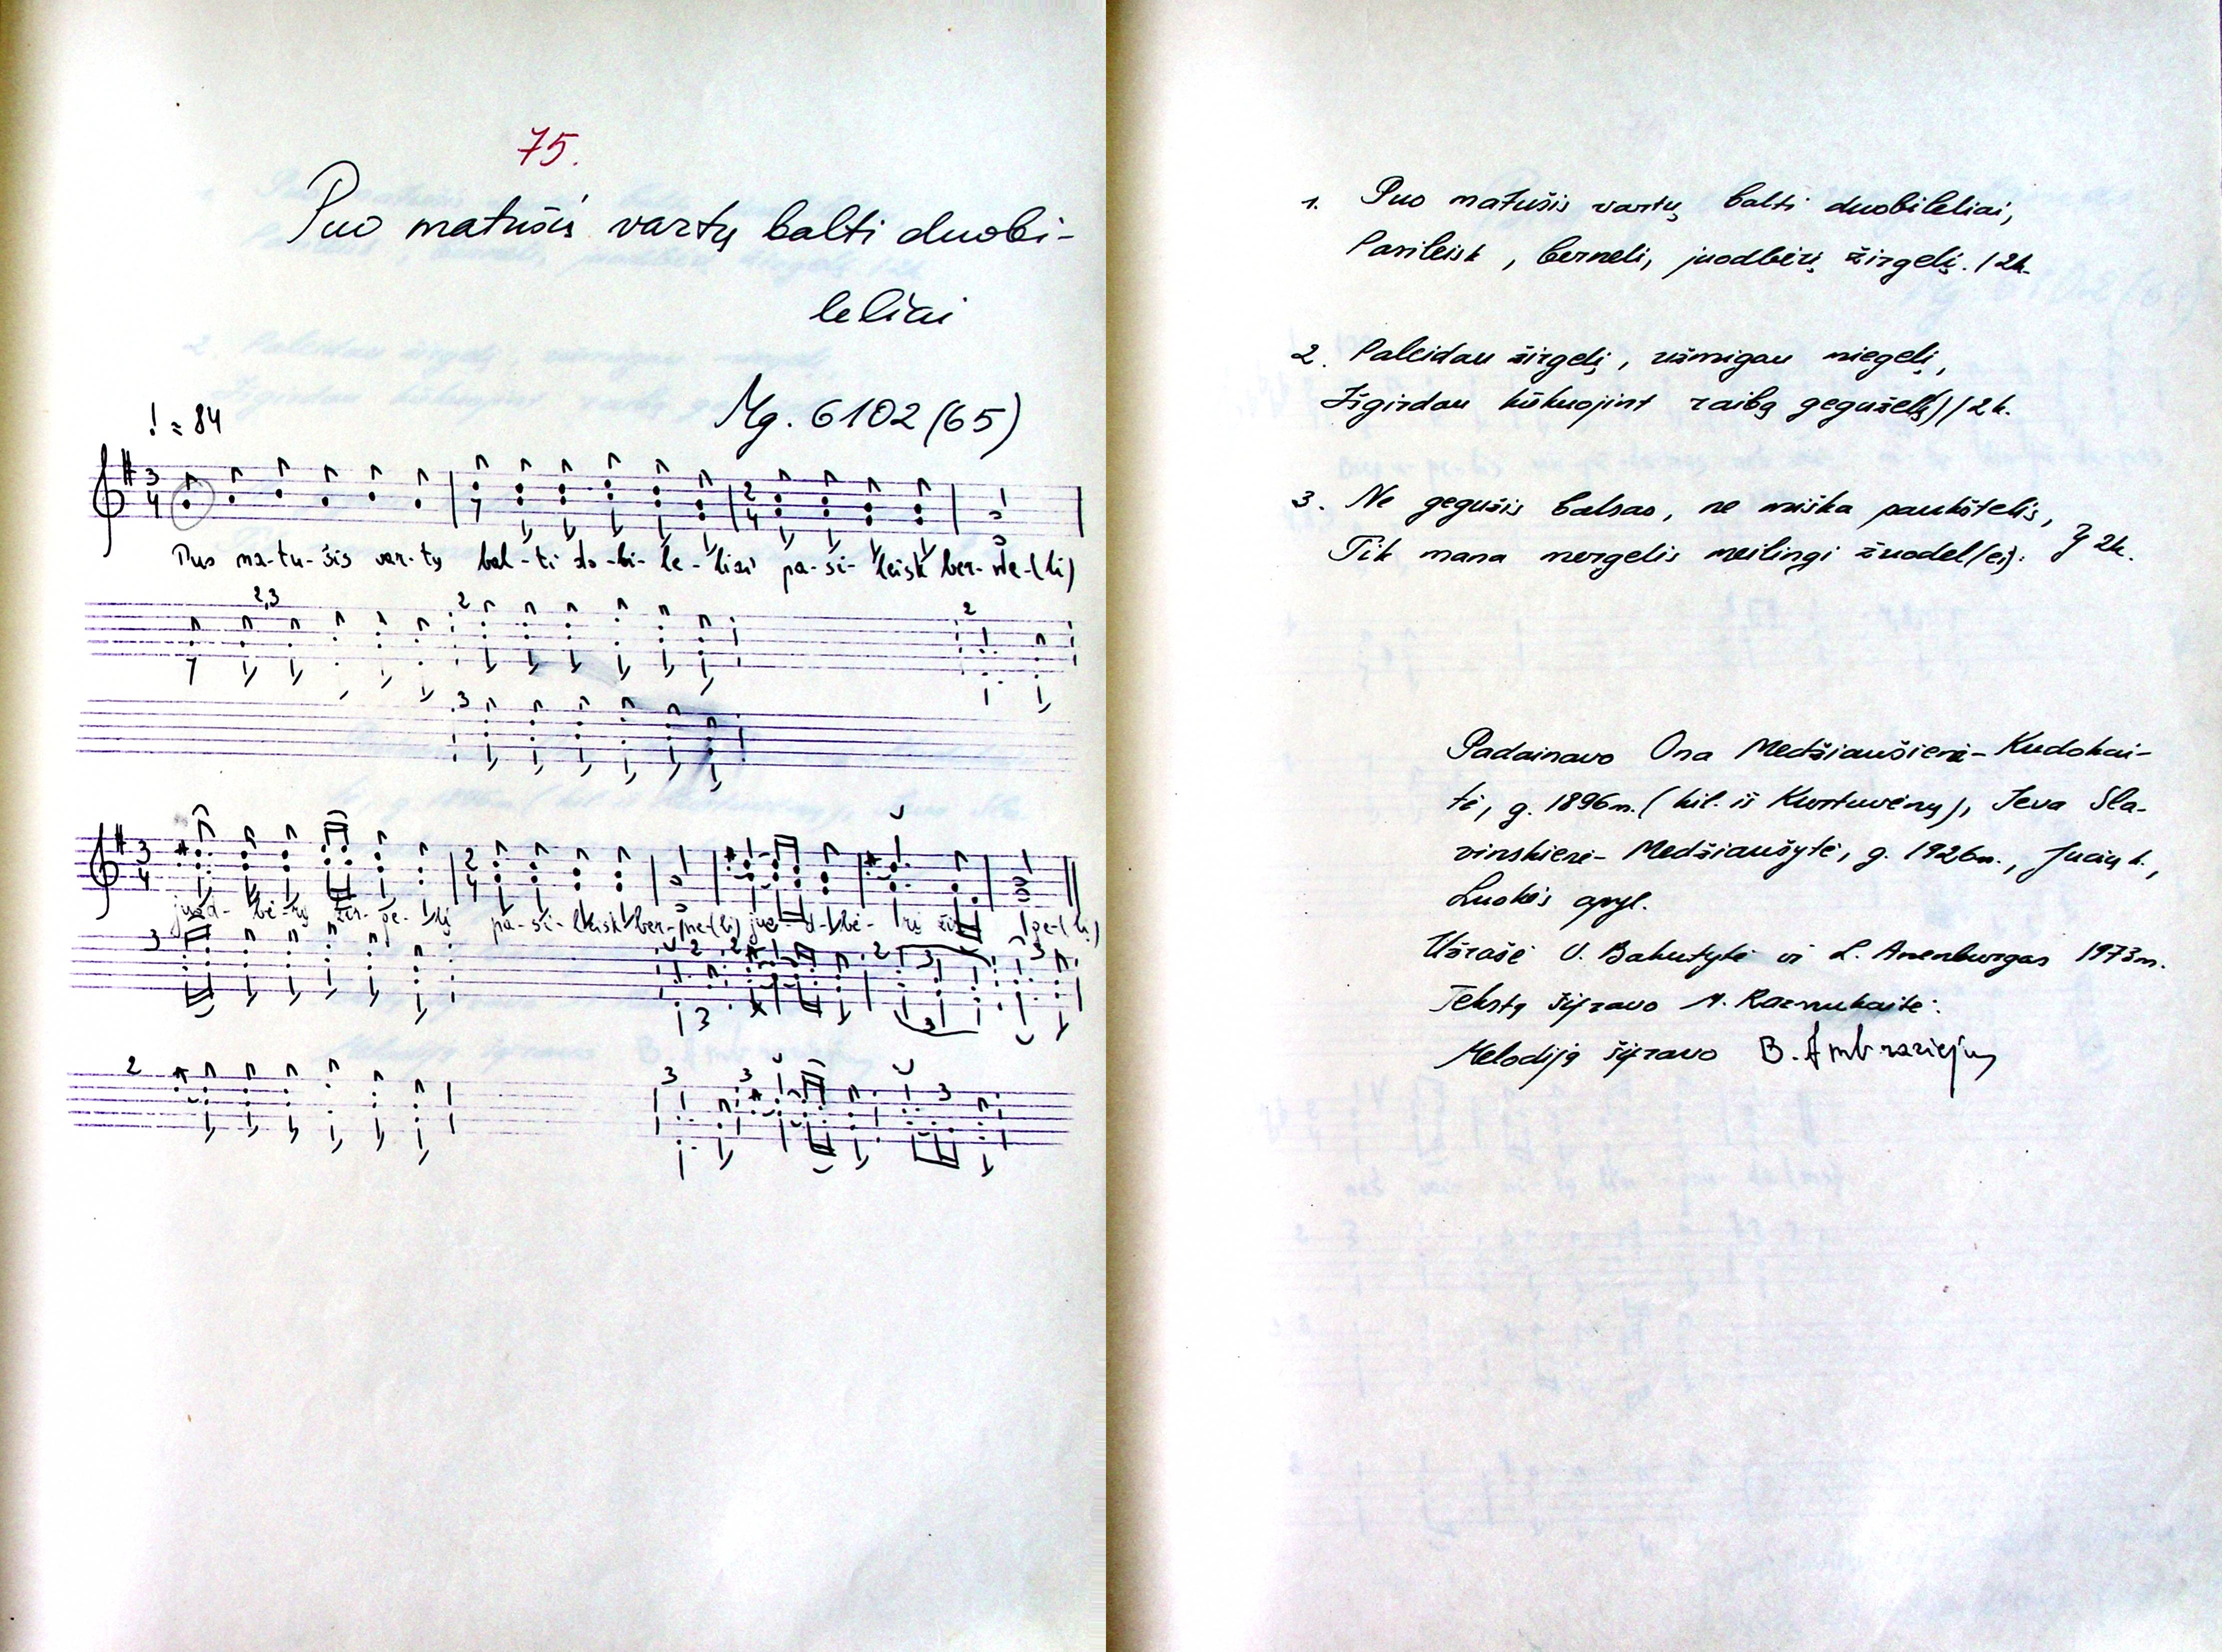 75.
Puo matušis vartų balti duobi-
leliai
Mg. 6102 (65)
! = 84
Puo ma-tu-šis var-tų bal-ti do-bi-le-liai pa-si-leisk ber-ne-(li)
2,3 2 2
3
juod-bė-rį žir-ge-lį pa-si-leisk ber-ne-(li) juo-d-bė-rį žir-ge-(lį)
3
2
1. Puo matušis vartų balti duobileliai,
Pasileisk, berneli, juodbėrį žirgelį. / 2k.
2. Paleidau žirgelį, užmigau miegelį,
Išgirdau kūkuojint raibą gegužel(ę) / 2k.
3. Ne gegužis balsas, ne miška paukštelis,
Tik mana mergelis meilingi žuodel(ei). } 2k.
Padainavo Ona Medžiaušienė-Kudokai-
tė, g. 1896m. (kil. iš Kurtuvėnų), Ieva Sla-
vinskienė-Medžiaušytė, g. 1926m., Jucių k.,
Luokės apyl.
Užrašė V. Bakutytė ir L. Anenburgas 1973m.
Tekstą šifravo N. Razmukaitė.
Melodiją šifravo B. Ambraziejus